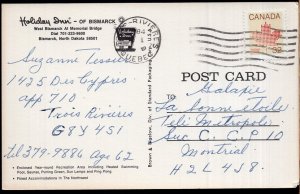 Holiday Inn® - OF BISMARCK
West Bismarck At Memorial Bridge
Dial 701-223-9600
Bismarck, North Dakota 58501
Suzanne Tessier
1425 Des Cypres
app 710
Trois Rivieres
G8Y 4S1
tel 379-9886 Age 62
Enclosed Year-round Recreation Area Including Heated Swimming
Pool, Saunas, Putting Green, Sun Lamps and Ping Pong.
Finest Accommodations In The Northwest
QUEBEC
CANADA
32
POST CARD
Galaxie
La bonne étoile
Télé Metropole
Suc C. C.P 10
Montréal
H2L 4J8.